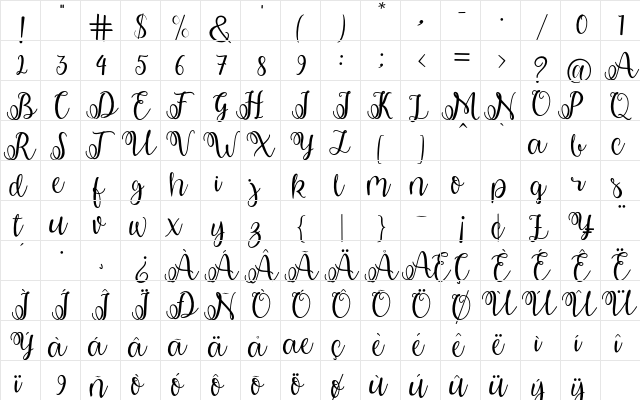 ! " # $ % & ' ( ) * , - . / 0 1
2 3 4 5 6 7 8 9 : ; < = > ? @ A
B C D E F G H I J K L M N O P Q
R S T U V W X Y Z [ ] ^ ` a b c
d e f g h i j k l m n o p q r s
t u v w x y z { | } ¯ ¡ ¢ £ ¥ ¨
´ · ¸ ¿ À Á Â Ã Ä Å Æ Ç È É Ê Ë
Ì Í Î Ï Ð Ñ Ò Ó Ô Õ Ö Ø Ù Ú Û Ü
Ý à á â ã ä å æ ç è é ê ë ì í î
ï ñ ò ó ô õ ö ø ù ú û ü ý ÿ